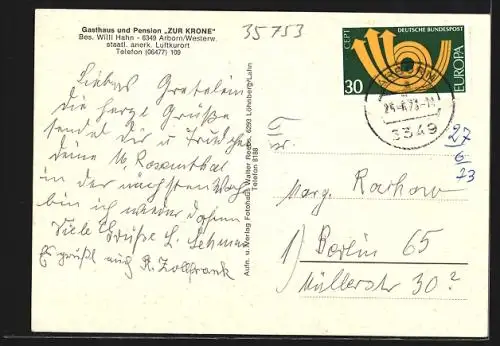 Gasthaus und Pension „ZUR KRONE"
Bes. Willi Hahn - 6349 Arborn/Westerw.
staatl. anerk. Luftkurort
Telefon (06477) 109
35753
Liebes Gretelein
die herzl. Grüße
sendet dir u.
deine M. Rosenthal
in der nächsten Woche
bin ich wieder daheim
Viele Grüße L. Lehmann
Es grüßt auch R. Zollfrank
Aufn. u. Verlag Fotohaus Walter 6293 Löhnberg/Lahn
Telefon 8188
CEPT
DEUTSCHE BUNDESPOST
30
EUROPA
6349
27
6
73
Fr.
Marg. Rachow
1) Berlin 65
Müllerstr 30?